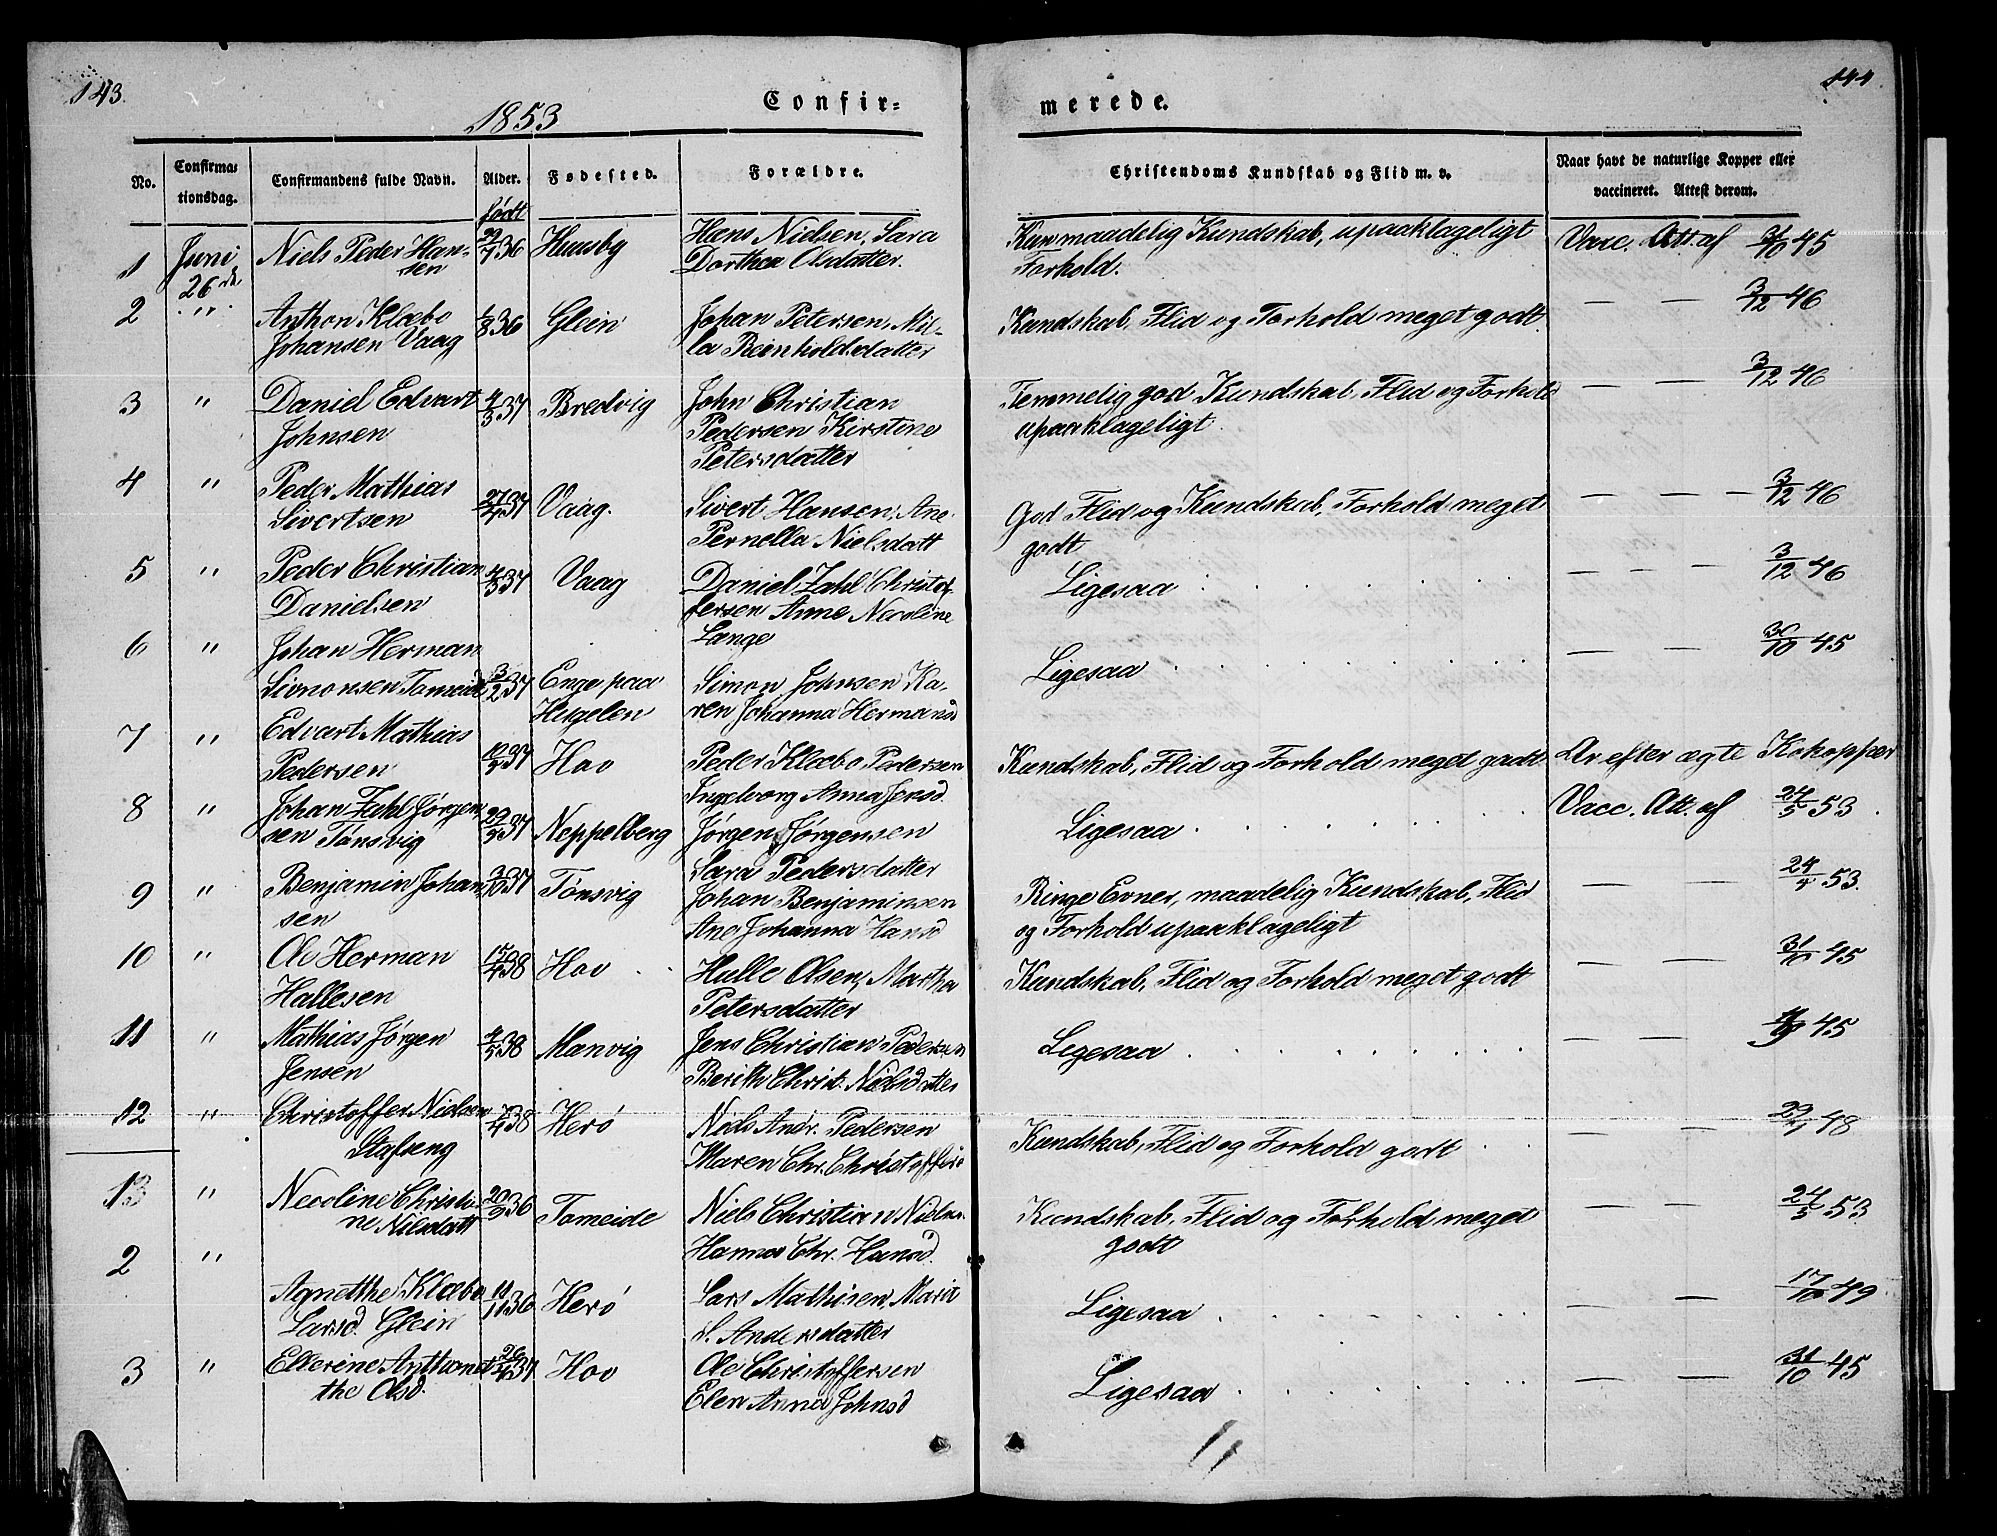 143.
1853
Confir=
merede.
144.
No.
Confirma=
tionsdag.
Confirmandens fulde Navn.
Alder.
født
Fødested.
Forældre.
Christendoms Kundskab og Flid m. v.
Naar havt de naturlige Kopper eller
vaccineret. Attest derom.
1 Juni Niels Peder Han- 36 Huusby Hans Nielsen, Sara Kun maadelig Kundskab, upaaklageligt Vacc. Att. af 45
26de sen Dorthea Olsdatter. Forhold.
2 " Anthon Klæbo 4/8 36 Glein Johan Petersen, Nil- Kundskab, Flid og Forhold meget godt. — — 3/12 46
Johansen Vaag la Reinholdsdatter
3 " Daniel Edvart 4/3 37 Bredvig John Christian Temmelig god Kundskab, Flid og Forhold — — 3/12 46
Johnsen Pedersen Kirstine upaaklageligt.
Petersdatter
4 " Peder Mathias 37 Vaag. Sivert Hansen, Ane God Flid og Kundskab, Forhold meget — — — 3/12 46
Sivertsen Pernella Nielsdatt godt
5 " Peder Christian 4/3 37 Vaag Daniel Zahl Christof- Ligesaa — — — 3/12 46
Danielsen fersen Anne Nicoline
Lange
6 " Johan Herman Ligesaa — — 30/10 45
Simonsen Tomeide 3/2 37 Enge paa Simon Johnsen Ka-
Hugelen ren Johanna Hermansd
7 " Edvart Mathias 37 Hov Peder Klæbo Pedersen Kundskab, Flid og Forhold meget godt Ar efter ægte Kokopper
Pedersen Ingeborg Anna Jensd.
8 " Johan Zahl Jørgen- 37 Neppelberg Jørgen Jørgensen Ligesaa Vacc. Att. af 24/5 53.
sen Tønsvig Sara Pedersdatter
9 " Benjamin Johan 37 Tønsvig Johan Benjaminsen Ringe Evner, maadelig Kundskab, Flid — — 53.
sen Ane Johanna Hansd og Forhold upaaklageligt
10 " Ole Herman 38 Hov Halle Olsen, Martha Kundskab, Flid og Forhold meget godt — — 45
Hallesen Petersdatter
11 " Mathias Jørgen 38 Manvig Jens Christian Pedersen Ligesaa — — 45
Jensen Berith Christ. Nielsdatter
12 " Christoffer Nielsen 38 Herø Niels Andr. Pedersen Kundskab, Flid og Forhold godt — — 48
Stafseng Maren Chr.
13 " Nicoline Christi- 36 Tomeide Niels Christian Kundskab, Flid og Forhold meget — — 24/5 53
ne Nilsdatt Hannas Chr. Hansd. godt
2 " Agnethe Klæbo 11/11 36 Herø Lars Mathisen Marit Ligesaa — — 17/10 49
Larsd. Glein S. Andersdatter
3 " Ellerine 37 Hov Ole Christoffersen Ligesaa — — 31/10 45
the Olsd. Elen Anna Johnsd